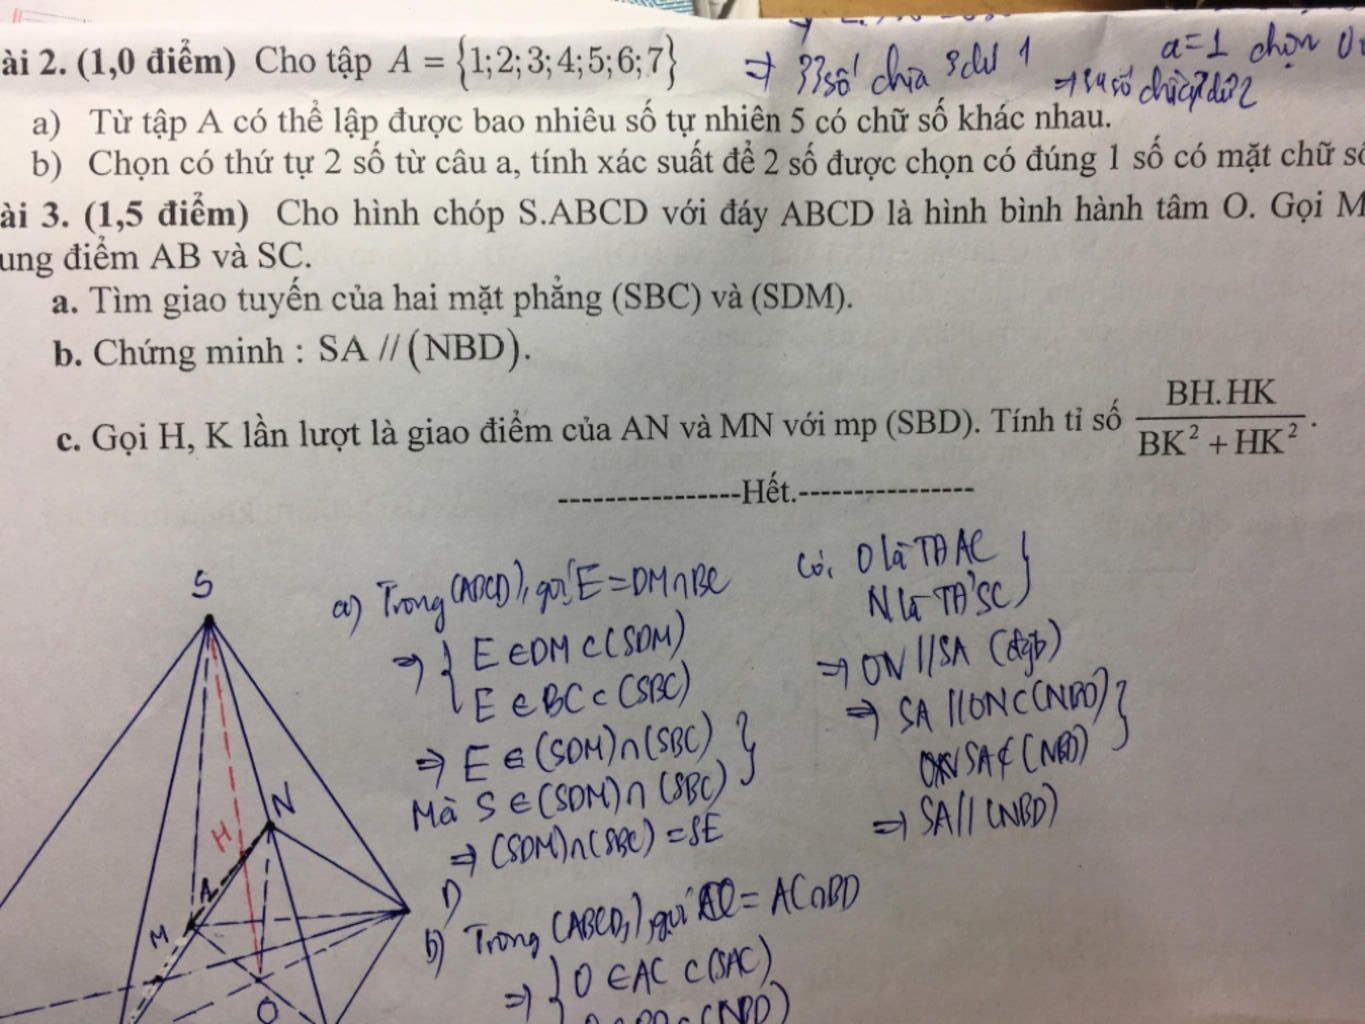 ài 2. (1,0 điểm) Cho tập A = {1;2;3;4;5;6;7}
⇒ 33 số chia 3 dư 1
a=1 chọn
⇒ 34 số chia 3 dư 2
a) Từ tập A có thể lập được bao nhiêu số tự nhiên 5 có chữ số khác nhau.
b) Chọn có thứ tự 2 số từ câu a, tính xác suất để 2 số được chọn có đúng 1 số có mặt chữ số
ài 3. (1,5 điểm) Cho hình chóp S.ABCD với đáy ABCD là hình bình hành tâm O. Gọi M
ung điểm AB và SC.
a. Tìm giao tuyến của hai mặt phẳng (SBC) và (SDM).
b. Chứng minh : SA // (NBD).
c. Gọi H, K lần lượt là giao điểm của AN và MN với mp (SBD). Tính tỉ số BH.HK / BK² + HK² .
----------------Hết.---------------
S
N
H
A
M
D
O
a) Trong (ABCD), gọi E = DM ∩ BC
⇒ { E ∈ DM ⊂ (SDM)
E ∈ BC ⊂ (SBC)
⇒ E ∈ (SDM) ∩ (SBC) }
Mà S ∈ (SDM) ∩ (SBC)
⇒ (SDM) ∩ (SBC) = SE
b) Trong (ABCD), gọi O = AC ∩ BD
⇒ { O ∈ AC ⊂ (SAC)
Có, O là TĐ AC }
N là TĐ SC
⇒ ON // SA (đtb)
⇒ SA // ON ⊂ (NBD) }
SA ⊄ (NBD)
⇒ SA // (NBD)